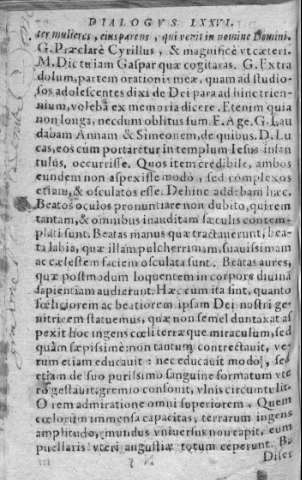 DIALOGVS LXXVI.
ter mulieres, eiusque parens, qui venit in nomine Domini.
G. Præclarè Cyrillus, & magnificè vt cæteri.
M. Dic tu iam Gaspar quæ cogitaras. G. Extra
dolum, partem orationis meæ, quam ad studio-
sos adolescentes dixi de Dei para ad hinc trien-
nium, volebā ex memoria dicere. Etenim quia
non longa, necdum oblitus sum. F. Age. G. Lau
dabam Annam & Simeonem, de quibus D. Lu
cas, eos cùm portaretur in templum Iesus infan
tulus, occurrisse. Quos item credibile, ambos
eundem non aspexisse modo, sed complexos
etiam, & osculatos esse. Dehinc addebam hæc.
Beatos oculos pronuntiare non dubito, qui rem
tantam, & omnibus inauditam sæculis contem-
plati sunt. Beatas manus quæ tractauerunt, bea-
ta labia, quæ illam pulcherrimam, suauissimam
ac cælestem faciem osculata sunt. Beatas aures,
quæ postmodum loquentem in corpore diuina
sapientiam audierunt. Hæc cum ita sint, quanto
fœliciorem ac beatiorem ipsam Dei nostri ge-
nitricem statuemus, quæ non semel duntaxat as
pexit hoc ingens cœli terræque miraculum, sed
quàm sæpissimè non tantum contrectauit, ve-
rum etiam educauit: nec educauit modo, sed
etiam de suo purissimo sanguine formatum vte
ro gestauit, gremio confouit, vlnis circumtulit.
O rem admiratione omni superiorem. Quem
cœlorum immensa capacitas, terrarum ingens
amplitudo, mundus vniuersus non capit, eum
puellaris vteri angustiæ totum ceperunt. B.
Diser